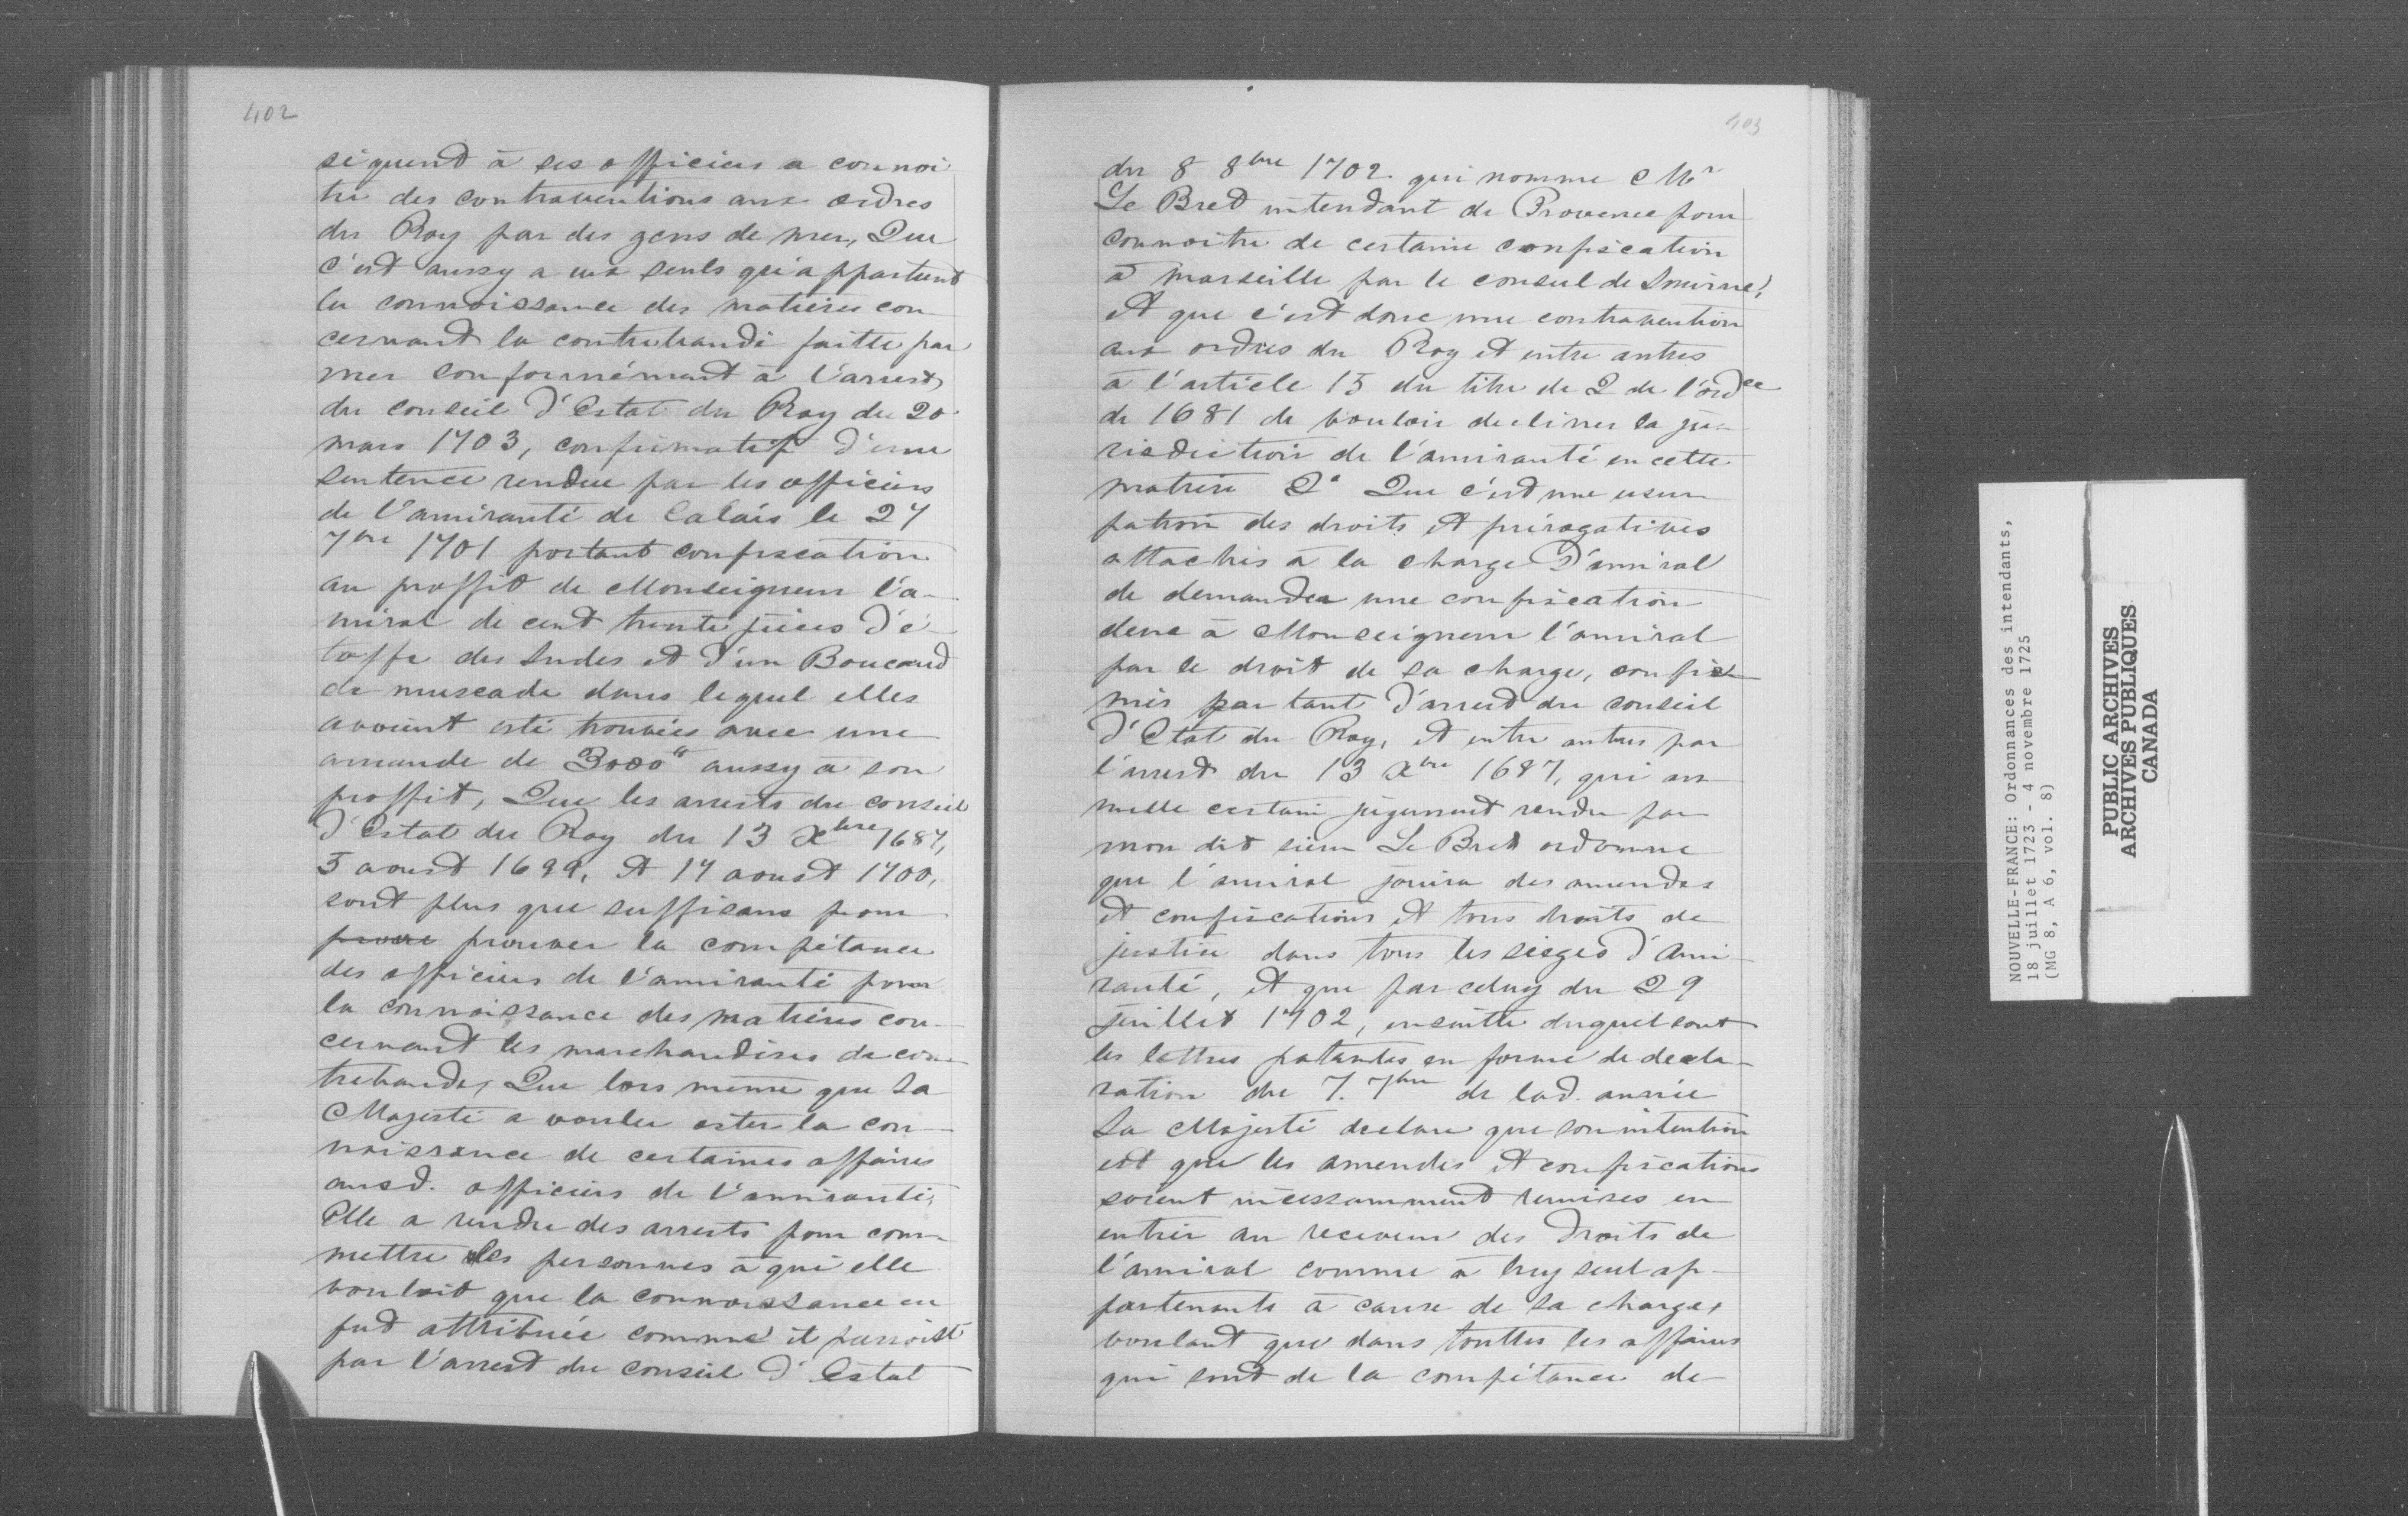 402
séquend à ses officiers a connoi
tre des contraventions aux ordres
du Roy par des gens de mer, Que
c'est aussy a eux seuls qu'appartient
la connoissance des matières con
cernant la contrebande faitte par
mer conformément à l'arrest
du conseil d'Estat du Roy du 20
mars 1703, confirmatif d'une
sentence rendue par les officiers
de l'amirauté de Calais le 27
7bre 1701 portant confiscation
au proffit de Monseigneur l'a-
miral de cent trente pièces d'é-
toffe des Indes et d'un Boucaud
de muscade dans lequel elles
avoient esté trouvées avec une
amande de 3000tt aussy à son
proffit, Que les arrests du conseil
d'Estat du Roy du 13 Xbre 1687,
5 aoust 1699, et 17 aoust 1700,
sont plus que suffisans pour
prouver la compétance
des officiers de l'amirauté pour
la connoissance des matières con-
cernant les marchandises de con-
trebande, Que lors meme que Sa
Majesté a voulu oster la con-
noissance de certaines affaires
ausd. officiers de l'amirauté,
Elle a rendu des arrests pour com-
mettre les personnes à qui elle
vouloit que la connoissance en
fud attribuée comme il parroist
par l'arrest du conseil d'Estat
403
du 8 8bre 1702. qui nomme Mr
Le Bret intendant de Provence pour
connoitre de certaine confiscation
à Marseille par le consul de Smirne,
et que c'est donc une contravention
aux ordres du Roy et entre autres
à l'article 15 du titre de 2 de l'ordce
de 1681 de vouloir decliner la ju-
risdiction de l'amirauté en cette
matière 2° Que c'est une usur
pation des droits et prérogatives
attachés à la charge D'amiral
de demander une confiscation
deue à Monseigneur l'amiral
par le droit de sa charge, confir
més par tant d'arrest du conseil
d'Etat du Roy, et entre autres par
l'arrest du 13 Xbre 1687, qui an
nulle certain jugement rendu par
mon dit sieur Le Bret ordonne
que l'amiral jouira des amendes
et confiscations et tous droits de
justice dans tous les sièges d'ami-
rauté, et que par celuy du 29
juillet 1702, ensuitte duquel sont
les lettres patantes en forme de decla-
ration du 7. 7bre de lad. année
Sa Majesté declare que son intention
est que les amendes et confiscations
soient incessamment remises en
entier au receveur des Droits de
l'amiral comme à luy seul ap-
partenants à cause de sa charge,
voulant que dans touttes les affaires
qui sont de la compétance de
NOUVELLE-FRANCE: Ordonnances des intendants,
18 juillet 1723 - 4 novembre 1725
(MG 8, A 6, vol. 8)
PUBLIC ARCHIVES
ARCHIVES PUBLIQUES
CANADA